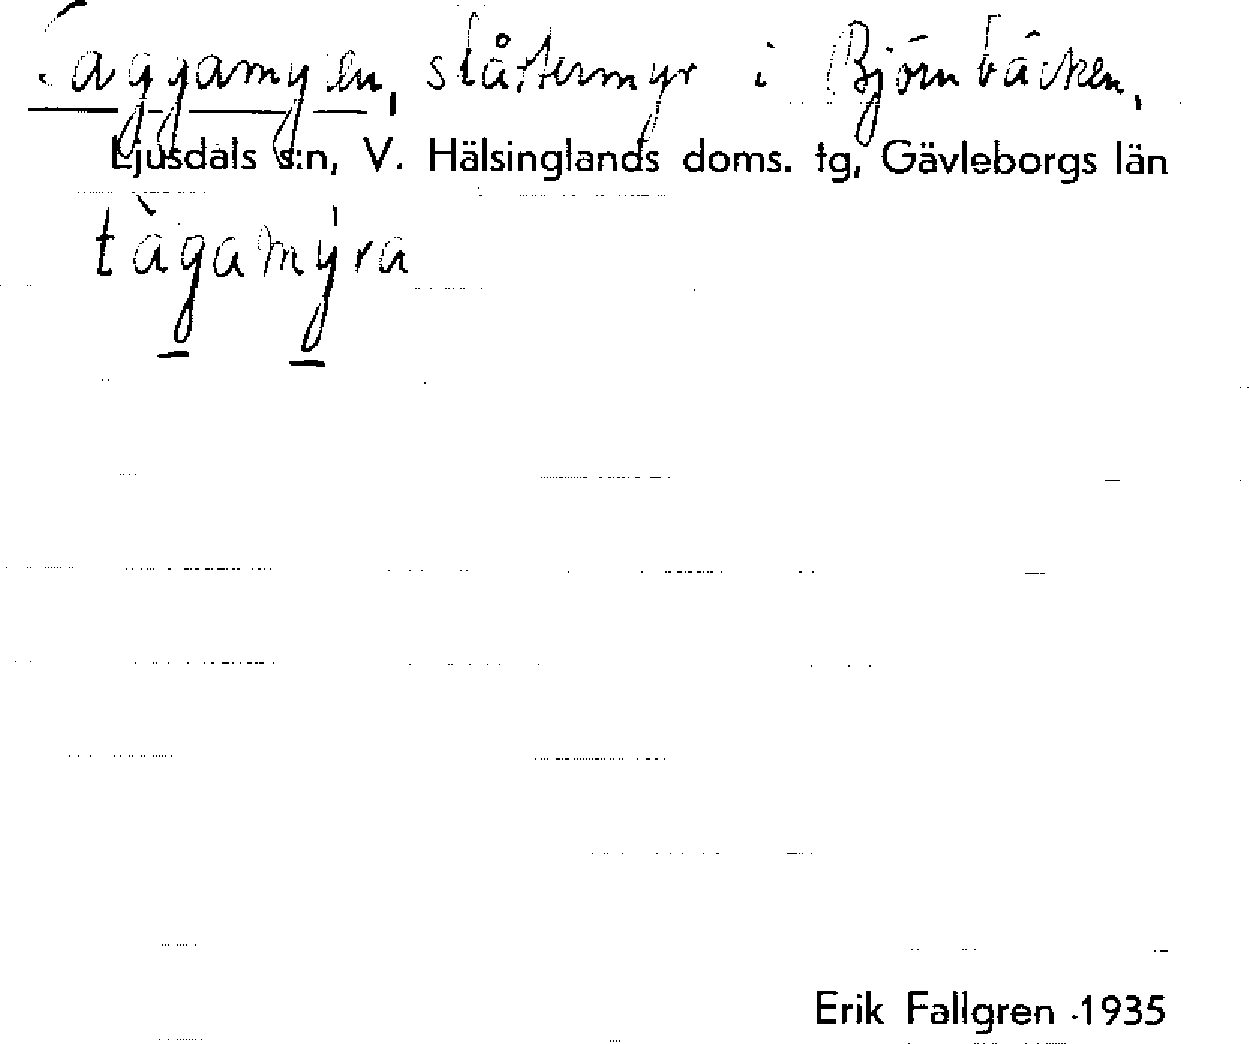 Taggamyren, slåttermyr i Björnbäcken,
Ljusdals s:n, V. Hälsinglands doms. tg, Gävleborgs län
tàgamýra
Erik Fallgren 1935